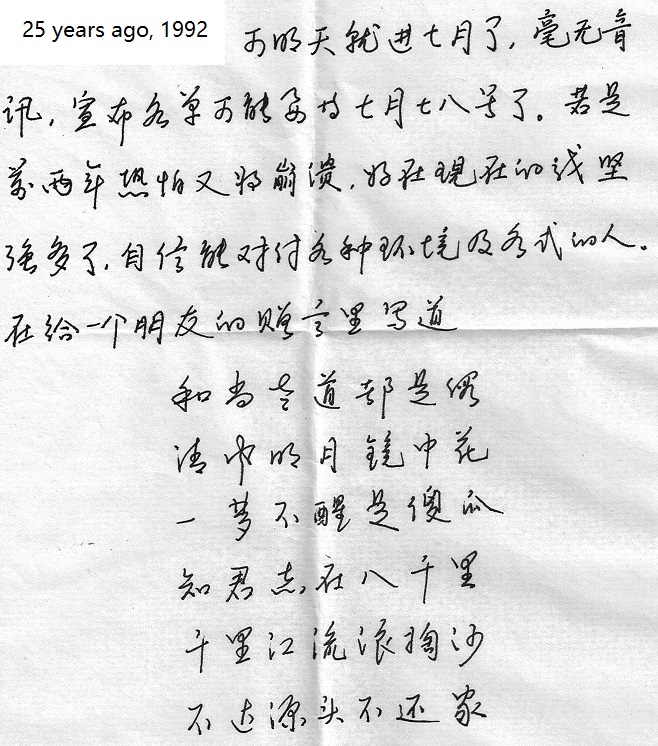 25 years ago, 1992
可明天就进七月了，毫无音
讯，宣布名单可能要待七月七八号了。若是
前两年恐怕又将崩溃，好在现在的我坚
强多了，自信能对付各种环境及各式的人。
在给一个朋友的赠言里写道
和尚老道都是假
清中明月镜中花
一梦不醒是傻瓜
知君志在八千里
千里江流浪掏沙
不达源头不还家